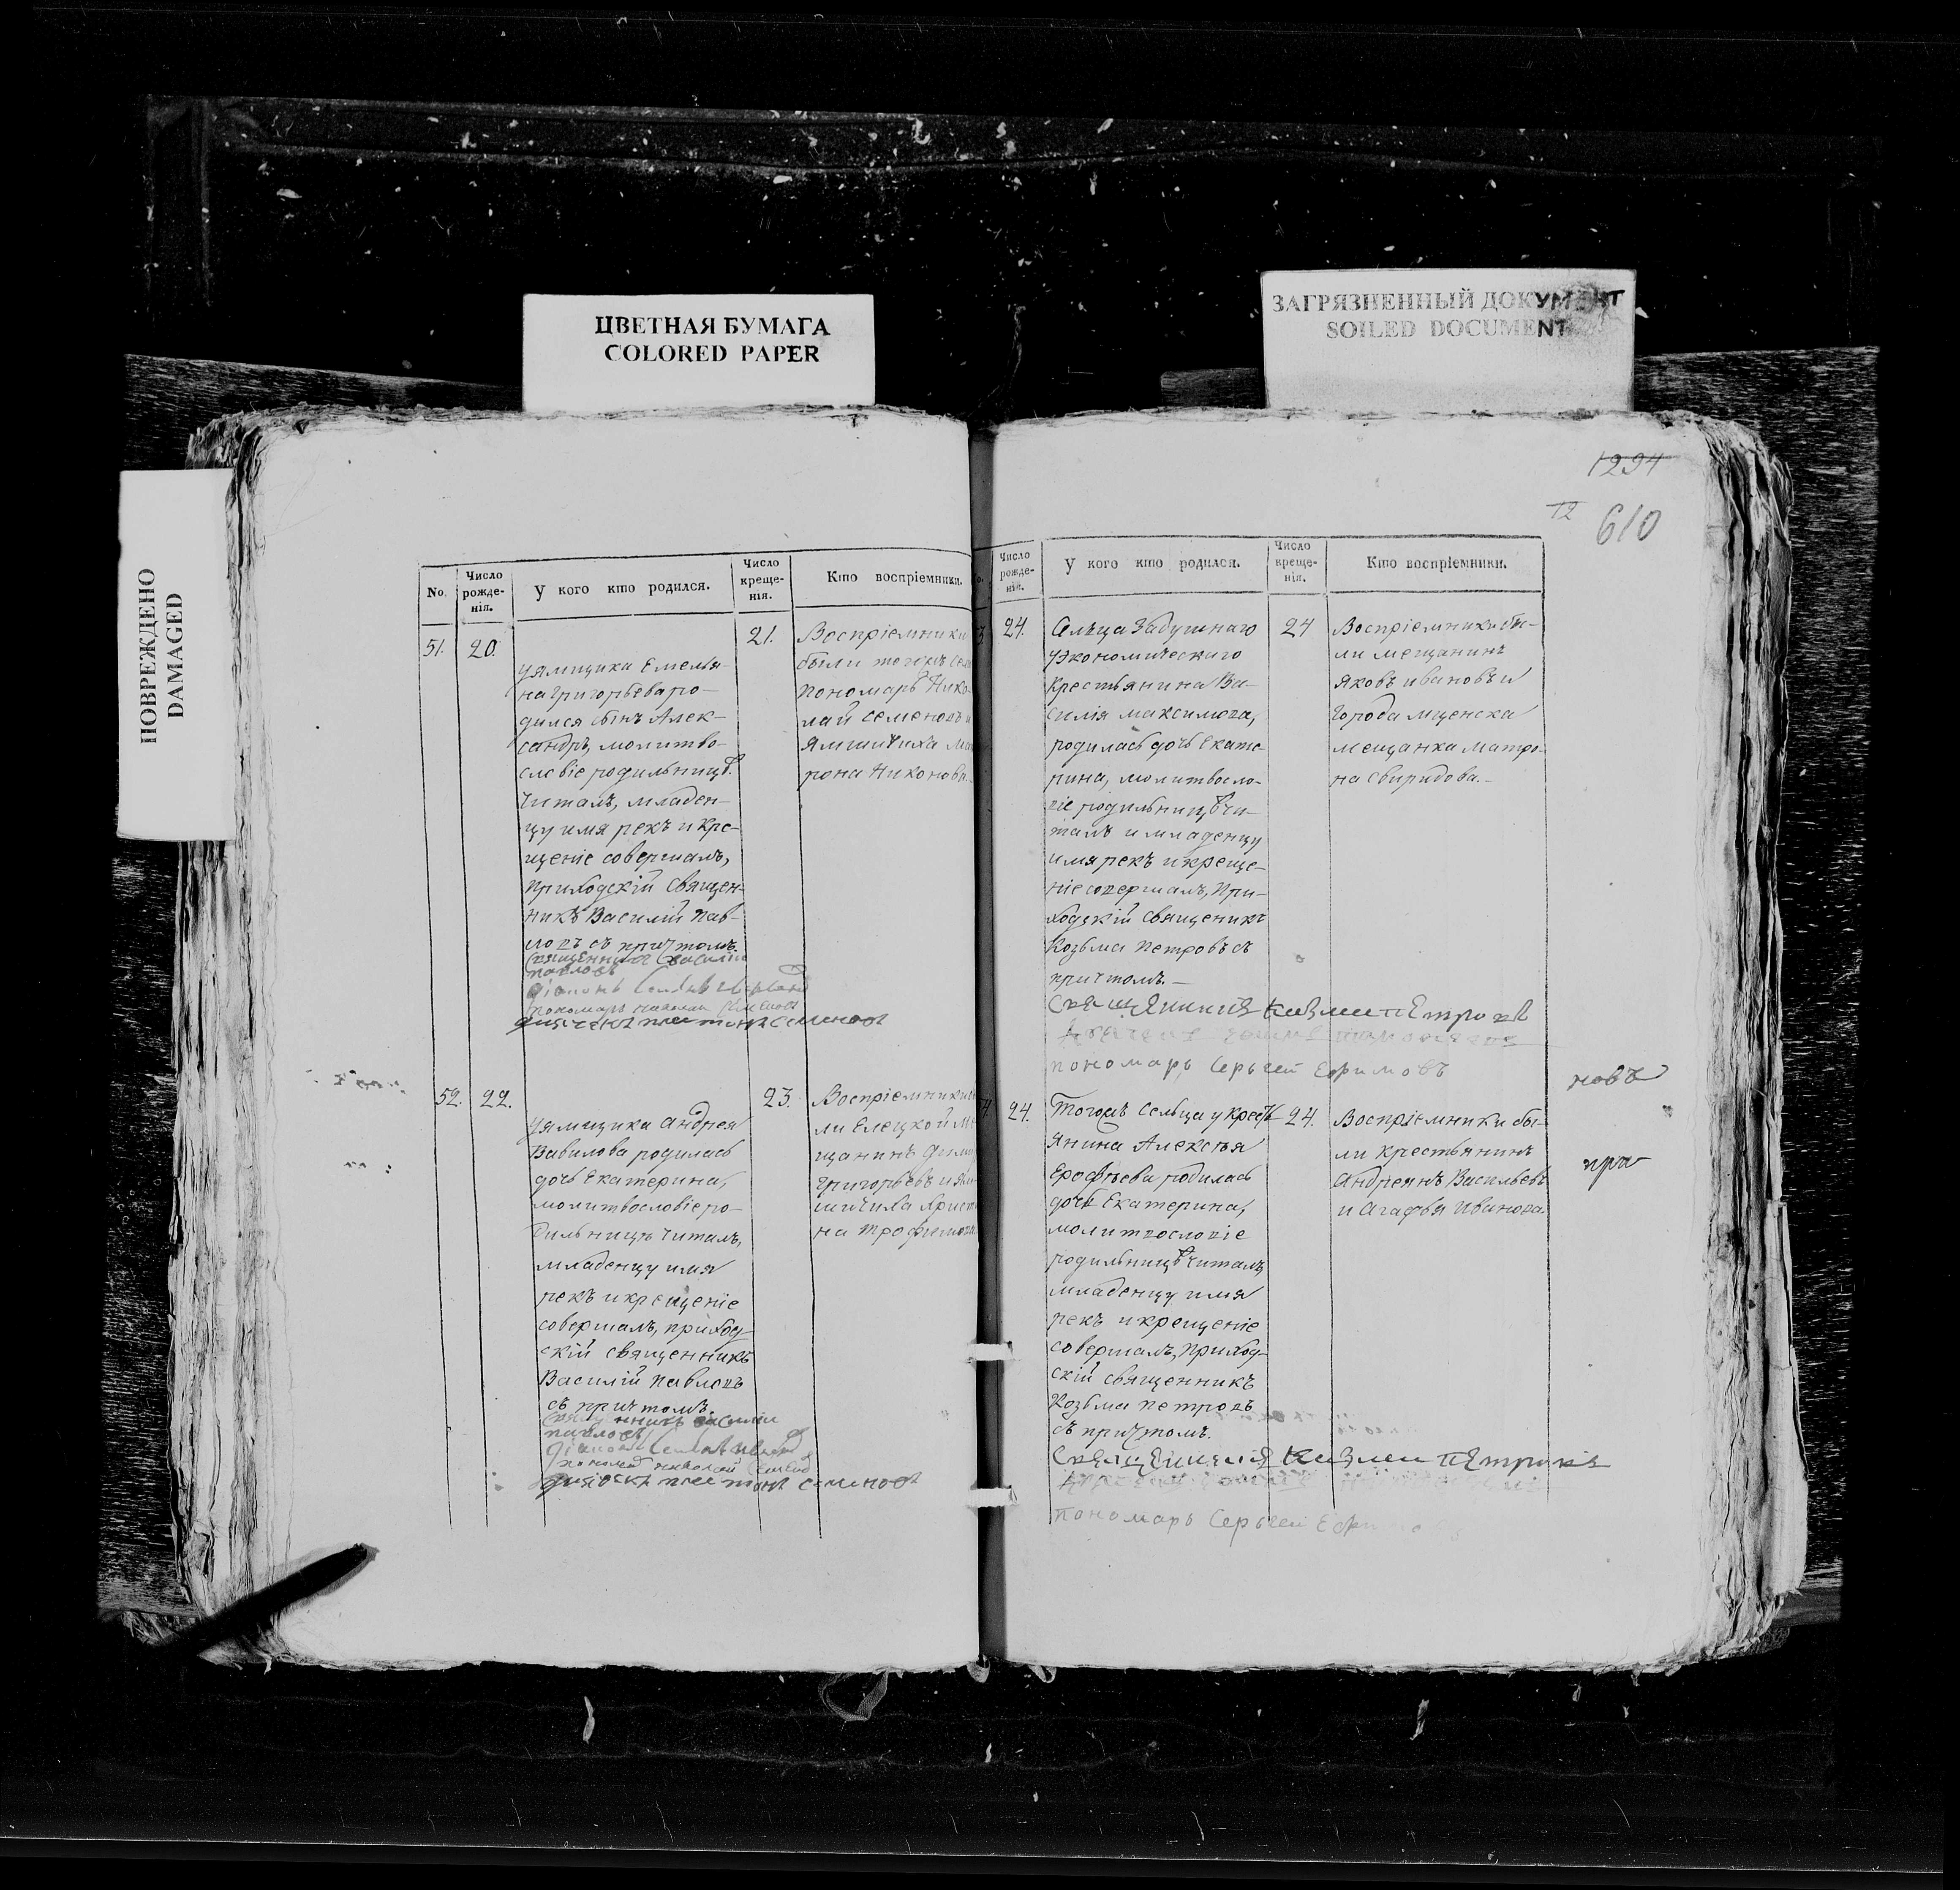 ЦВЕТНАЯ БУМАГА
COLORED PAPER
ЗАГРЯЗНЕННЫЙ ДОКУМЕНТ
SOILED DOCUMENT
ПОВРЕЖДЕНО
DAMAGED
1294
12
610
No.
Число рожденія.
У кого кто родился.
Число крещенія.
Кто воспріемники.
51.
20.
уямщика Емелья-
на Григорьева ро-
дился сынъ Алек-
сандръ, молитво-
словіе родильницѣ
читалъ, младен-
цу имя рекъ и кре-
щеніе совершалъ,
приходскій священ-
никъ Василій Пав-
ловъ съ причтомъ.
Священникъ Василій
Павловъ
пономарь Николай Семеновъ
21.
Воспріемники
были тогожъ
пономарь Нико-
лай Семеновъ и
ямщичиха
рона Никонова.
52.
22.
уямщика Андрея
Вавилова родилась
дочь Екатерина,
молитвословіе ро-
дильницѣ читалъ,
младенцу имя
рекъ и крещеніе
совершалъ, приход-
скій священникъ
Василій Павловъ
съ причтомъ.
Василій
Павловъ
23.
Воспріемники
ли Елецкой
щанинъ
Григорьевъ и
щичиха
на Трофимова
Число рожденія.
У кого кто родился.
Число крещенія.
Кто воспріемники.
24.
Сельца Задушнаго
уэкономическаго
крестьянина Ва-
силія Максимова,
родилась дочь Екате-
рина, молитвосло-
віе родильницѣ чи-
талъ и младенцу
имя рекъ и креще-
ніе совершалъ, при-
ходскій священикъ
Козьма Петровъ съ
причтомъ.-
Козма Петровъ
пономарь Сергей Ефимовъ
24
Воспріемники бы-
ли мещанинъ
Яковъ Ивановъ и
города Мценска
мещанка Матро-
на Свиридова.-
новъ
24.
Тогожъ сельца у крест-
янина Алексѣя
Ерофѣева родилась
дочь Екатерина,
молитвословіе
родильницѣ читалъ,
младенцу имя
рекъ и крещеніе
совершалъ, приход-
скій священникъ
Козьма Петровъ
съ причтомъ.
Козма Петровъ
пономарь Сергей
24.
Воспріемники бы-
ли крестьянинъ
Андреянъ Васильевъ
и Агафья Иванова
при